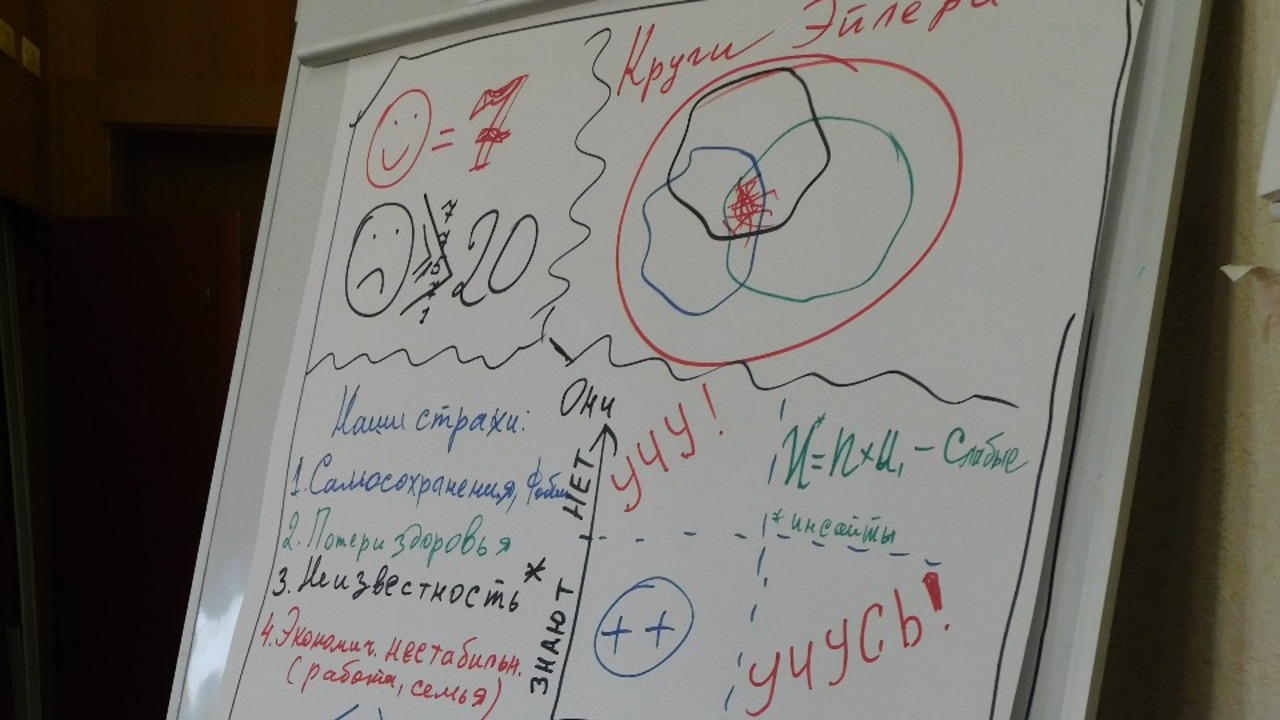 Круги Эйлера
= 7
20
Наши страхи:
1. Самосохранения,
2. Потери здоровья
3. Неизвестность *
4. Экономич. нестабильн.
(работа, семья)
Они
НЕТ
ЗНАЮТ
УЧУ!
– Слабые
* инсайты
++
УЧУСЬ!